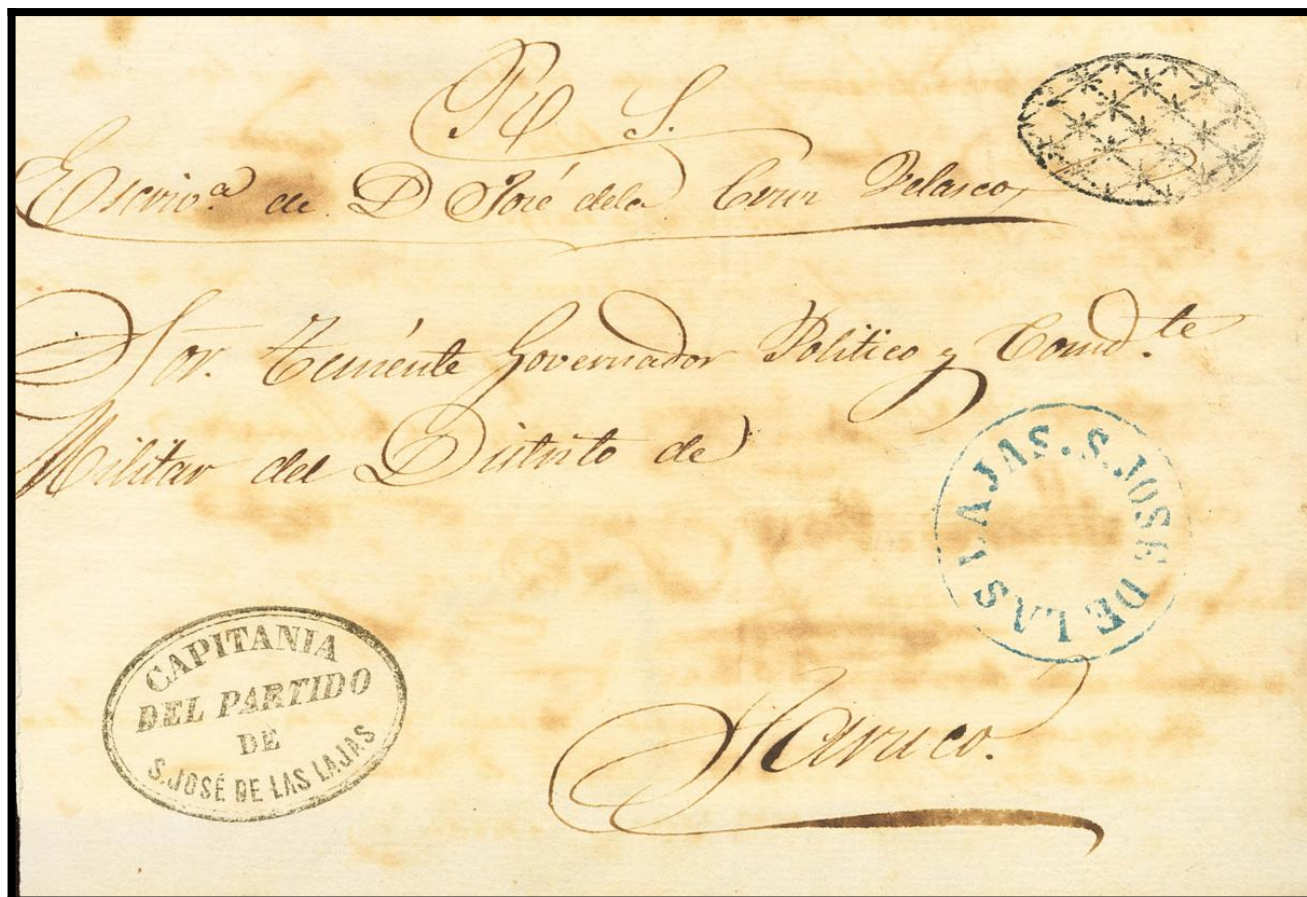 R. S.
Escriv.ª de D José dela Cruz Velasco
Sor. Teniénte Governador Politico y Comd.te
Militar del Distrito de
S. JOSE DE LAS LAJAS.
CAPITANIA
DEL PARTIDO
DE
S. JOSÉ DE LAS LAJAS
Jaruco.